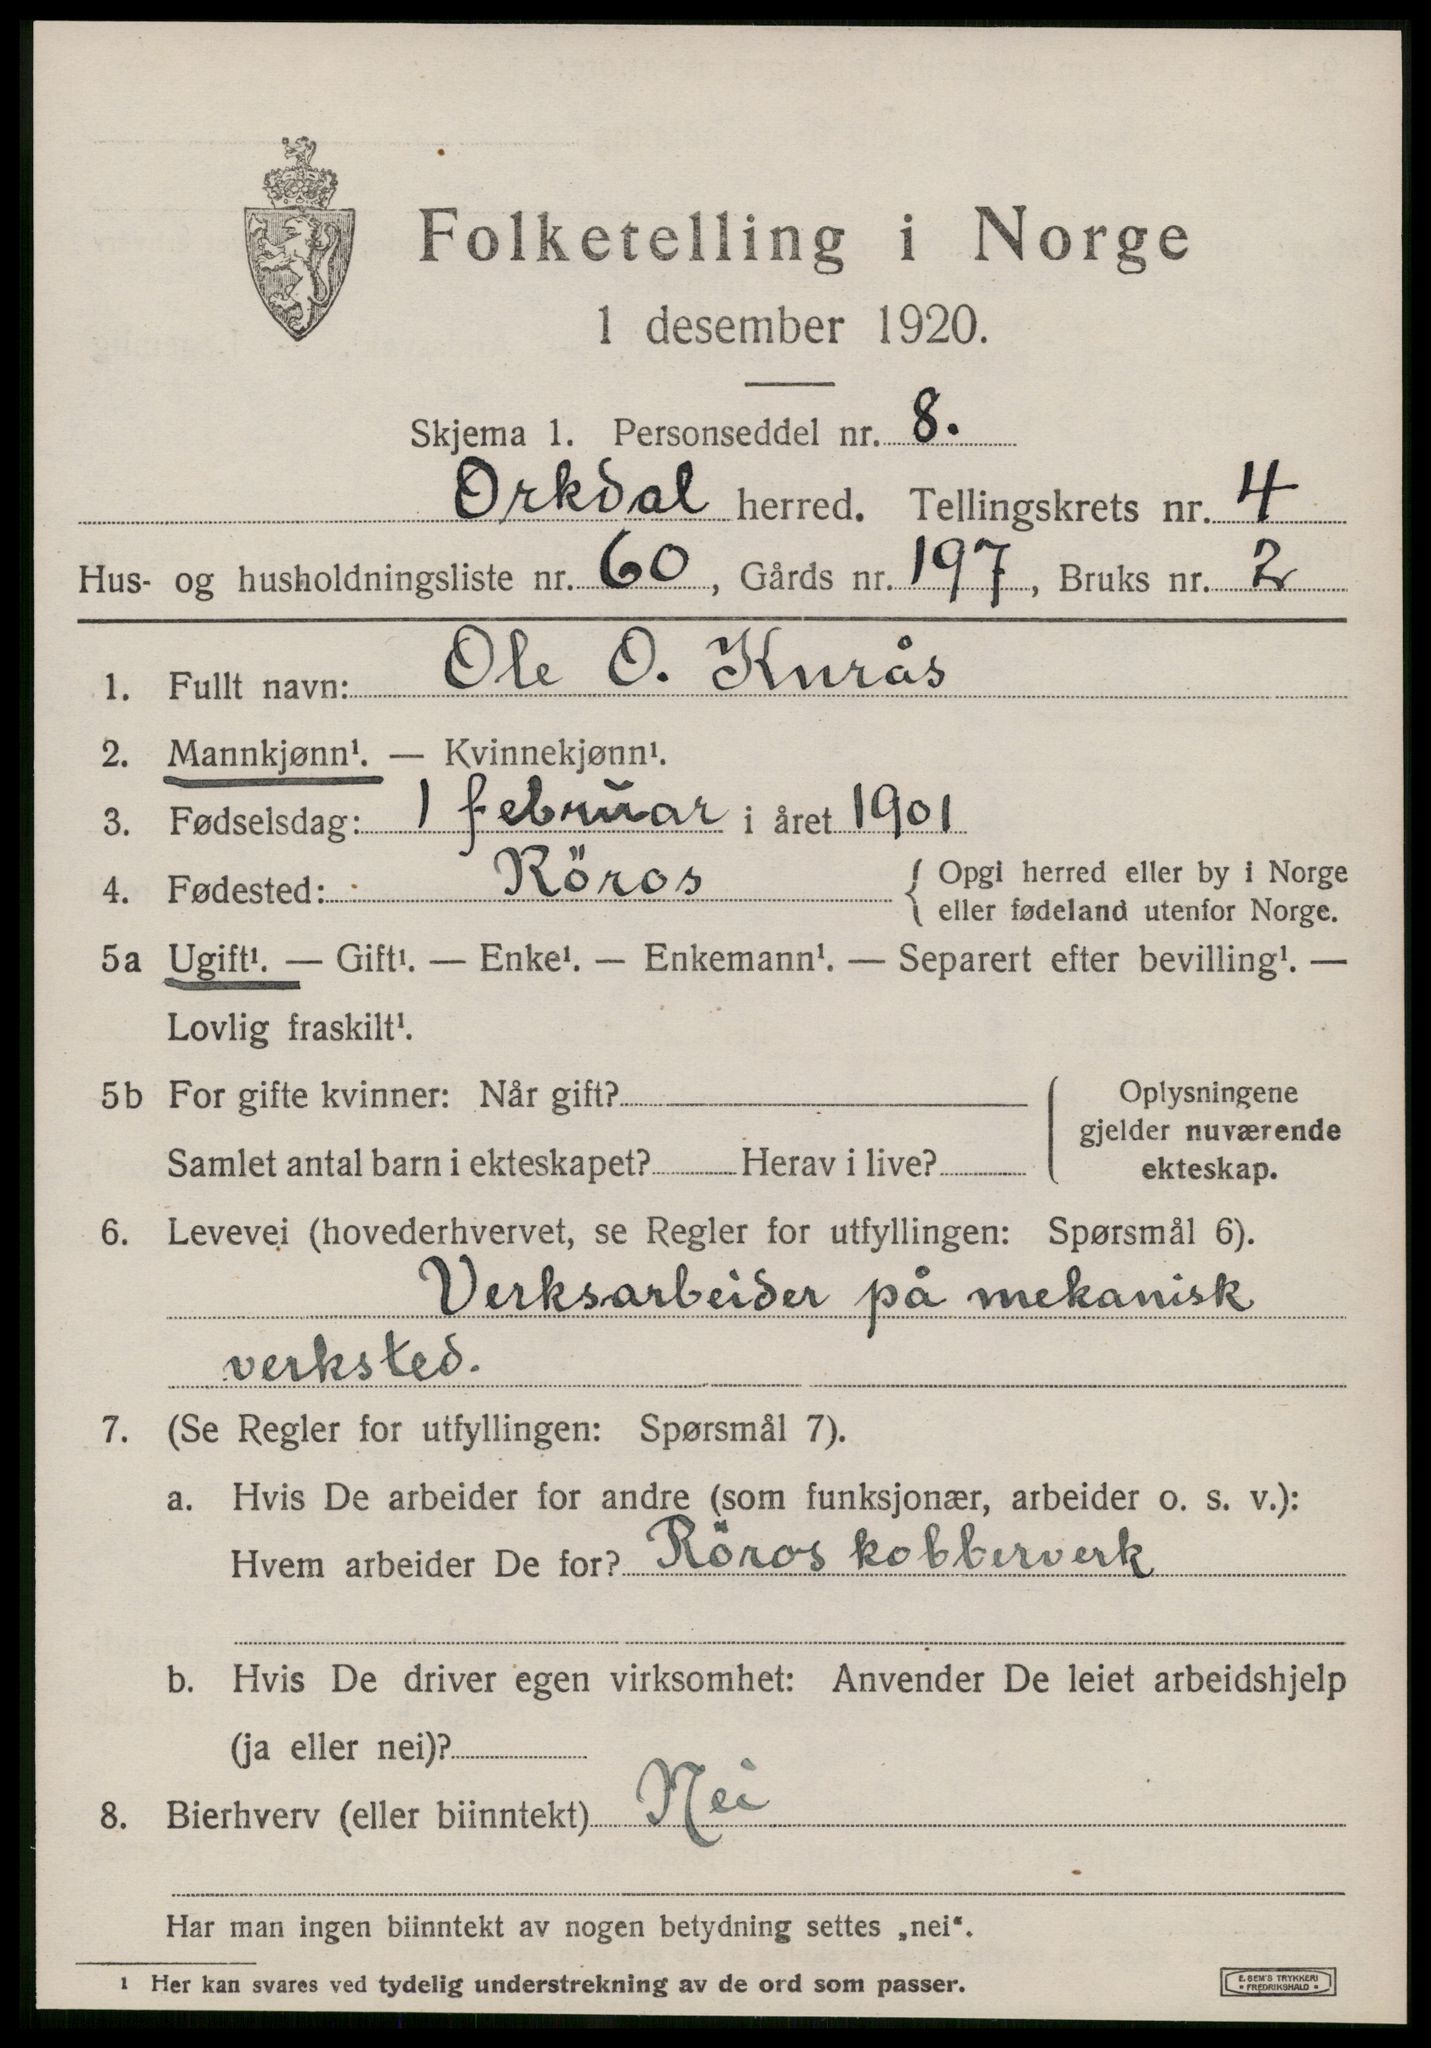 Folketelling i Norge
1 desember 1920.
Skjema 1. Personseddel nr. 8.
Orkdal herred. Tellingskrets nr. 4
Hus- og husholdningsliste nr. 60, Gårds nr. 197, Bruks nr. 2
1. Fullt navn: Ole O. Kurås
2. Mannkjønn¹. — Kvinnekjønn¹.
3. Fødselsdag: 1 februar i året 1901
4. Fødested: Röros { Opgi herred eller by i Norge
eller fødeland utenfor Norge.
5a Ugift¹. — Gift¹. — Enke¹. — Enkemann¹. — Separert efter bevilling¹. —
Lovlig fraskilt¹.
5b For gifte kvinner: Når gift? Oplysningene
gjelder nuværende
Samlet antal barn i ekteskapet? Herav i live? ekteskap.
6. Levevei (hovederhvervet, se Regler for utfyllingen: Spørsmål 6).
Verksarbeider på mekanisk
verksted.
7. (Se Regler for utfyllingen: Spørsmål 7).
a. Hvis De arbeider for andre (som funksjonær, arbeider o. s. v.):
Hvem arbeider De for? Röros kobberverk
b. Hvis De driver egen virksomhet: Anvender De leiet arbeidshjelp
(ja eller nei)?
8. Bierhverv (eller biinntekt) Nei
Har man ingen biinntekt av nogen betydning settes „nei“.
¹ Her kan svares ved tydelig understrekning av de ord som passer.
E. SEM'S TRYKKERI
• FREDRIKSHALD •